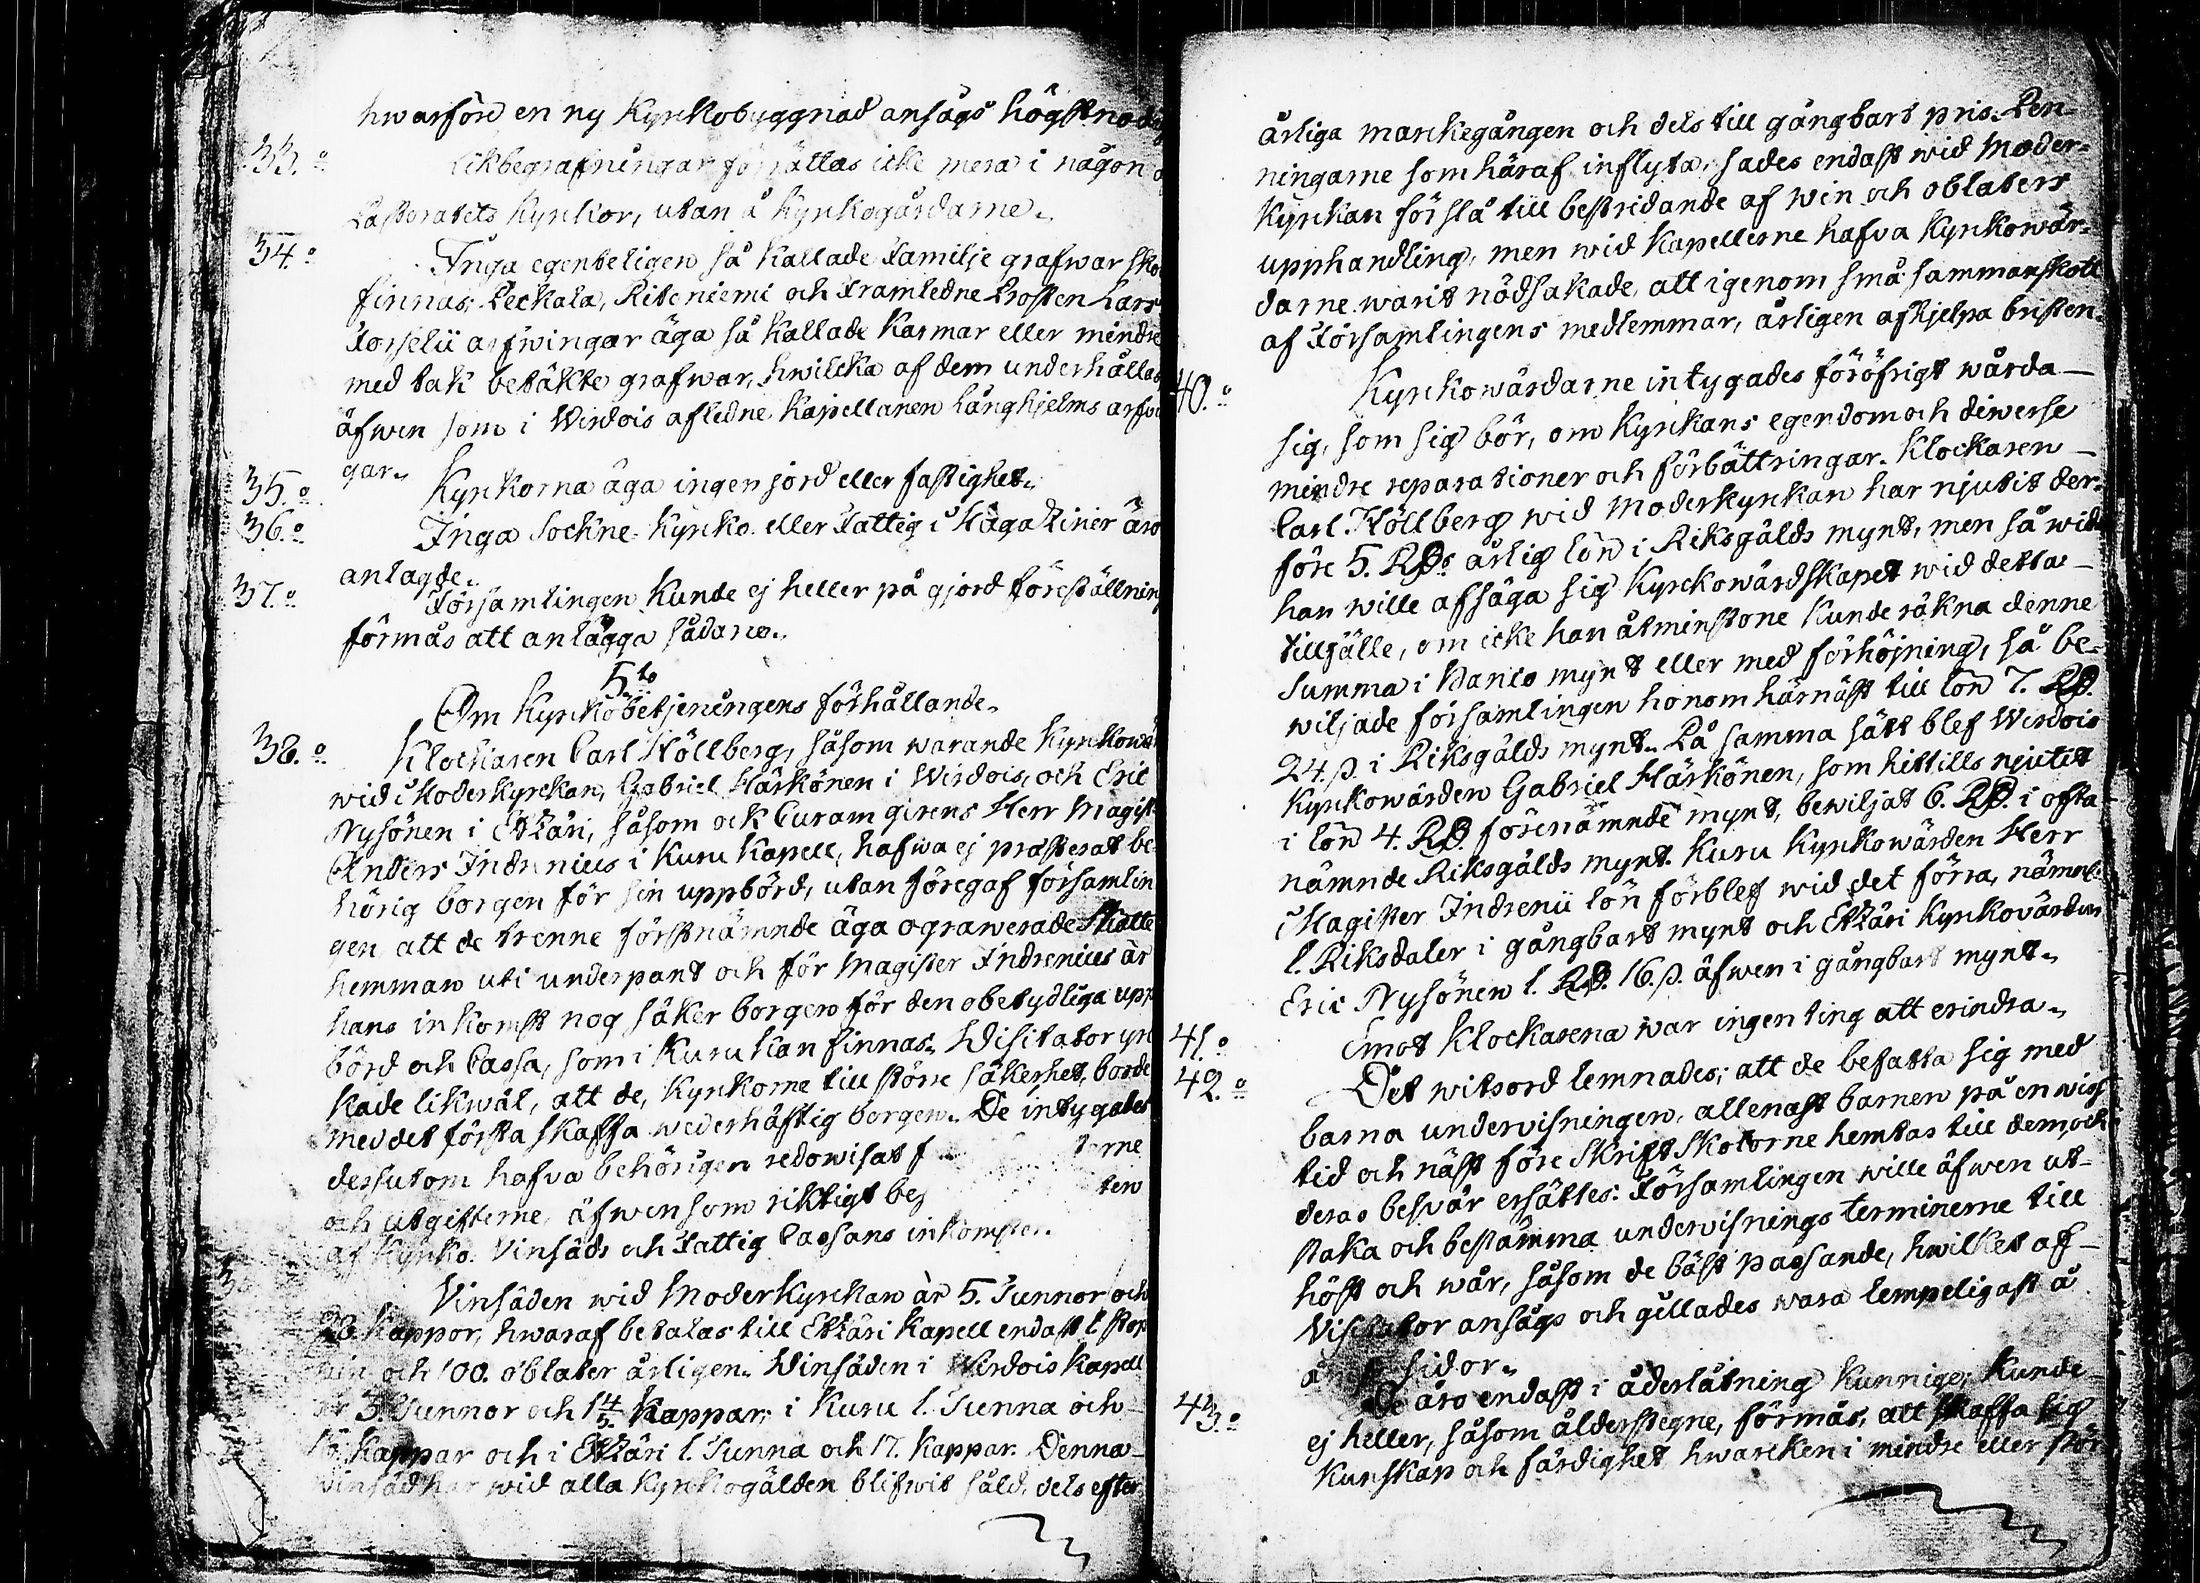 hwarföre en ny Kyrkobyggnad ansågs högstnödig
33.o Likbegrafningar förrättas icke mera i någon
Pastoratets Kyrkor, utan å Kyrkogårdarne.
34.o Inga egenteligen så kallade Familje grafwar sko
finnas; Peckala, Riteniemi och Framledne Prosten Lars
Forselii arfwingar äga så kallade Karmar eller mindre
med tak betäkte grafwar, hwilcka af dem underhållas
äfwen som i Wirdois afledne Kapellanen Långhjelms arfwin
gar.
35.o Kyrkorna äga ingen jord eller fastighet.
36.o Inga Sockne- Kyrko- eller Fattig Magaziner äro
anlagde.
37.o Församlingen Kunde ej heller på gjord föreställning
förmås att anlägga sådane.
5to
Om Kyrkobetjeningens förhållande.
38.o Klockaren Carl Höllberg, såsom warande Kyrkowär
wid Moderkyrckan, Gabriel Härkönen i Wirdois, och Eric
Nysönen i Etzäri, såsom ock Curam gerens Herr Magist
Anders Indrenius i Kuru Kapell, hafwa ej præsterat be
hörig borgen för sin uppbörd, utan föregaf församlin
gen, att de trenne förstnämnde äga ograwerade Skatte
hemman uti underpant och för Magister Indrenius är
hans inkomst nog säker borgen för den obetydliga upp
börd och Cassa, som i Kuru kan finnas. Visitator yr
kade likwäl, att de, Kyrkorne till större säkerhet, borde
med det första skaffa wederhäftig borgen. De intygades
dessutom hafva behörigen redowisat f terne
och utgifterne, äfwensom riktigt be ten
af Kyrko- Vinsäds och Fattig Cassans inkomster.
Vinsäden wid Moderkyrckan är 5. Tunnor och
20. Kappor, hwaraf betalas till Etzäri Kapell endast 1 stop
win och 100. oblater årligen. Winsäden i Wirdois Kapell
är 3. Tunnor och 1 4/5. Kappar; i Kuru 1. Tunna och
Kappar och i Etzäri 1. Tunna och 17. Kappar. Denna
winsäd har wid alla Kyrkogälden blifwit såld, dels efter
årliga marckegången och dels till gångbart pris. Pen-
ningarne som häraf inflyta, sades endast wid Moder-
Kyrckan förslå till bestridande af win och oblaters
upphandling, men wid Kapellerne hafva Kyrkowär-
darne warit nödsakade, att igenom små sammanskott
af Församlingens medlemmar, årligen afhjelpa bristen.
40.o Kyrckowärdarne intygades föröfrigt wårda
sig, som sig bör, om Kyrckans egendom och diwerse
mindre reparationer och förbättringar. Klockaren
Carl Höllberg wid Moderkyrckan har njutit der-
före 5. RD. årlig lön i Riksgälds mynt, men så wida
han wille afsäga sig Kyrckowärdskapet wid detta
tillfälle, om icke han åtminstone Kunde räkna denne
Summa i Banco mynt eller med förhöjning, så be-
wiljade församlingen honom härnäst till lön 7. RD.
24. ß. i Riksgälds mynt. På samma sätt blef Wirdois
Kyrkowärden Gabriel Härkönen, som hittills njutit
i lön 4. RD. förenämnde mynt, bewiljat 6. RD. i ofta
nämnde Riksgälds mynt. Kuru Kyrkowärden Herr
Magister Indrenii lön förblef wid det förra, nämnl.
1. Riksdaler i gångbart mynt och Etzäri Kyrkowärden
Eric Nysönen 1. RD. 16. ß. äfwen i gångbart mynt.
41.o Emot Klockarena war ingen ting att erindra.
42.o Det witsord lemnades; att de befatta sig med
barna undervisningen, allenast barnen på en wiss
tid och näst före Skrift Skolorne hemtas till dem, och
deras beswär ersättes. Församlingen wille äfwen ut-
staka och bestämma undervisnings terminerne till
höst och wår, såsom de bäst passande, hwilket af
Visitator ansågs och gillades wara lempeligast å
sidor.
43.o De äro endast i åderlåtning Kunnige, Kunde
ej heller, såsom ålderstegne, förmås, att skaffa sig
Kunskap och färdighet hwarcken i mindre eller stör